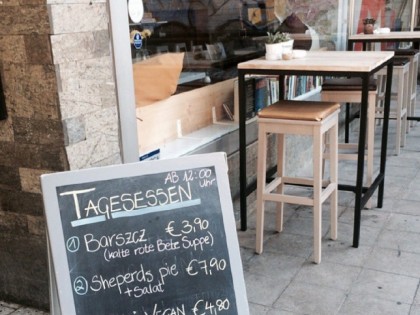 AB 12:00 Uhr
TAGESESSEN
1 BARSZCZ €3,90
(kalte rote Bete Suppe)
2 Sheperds pie €7,90
+ Salat
VEGAN €4,80